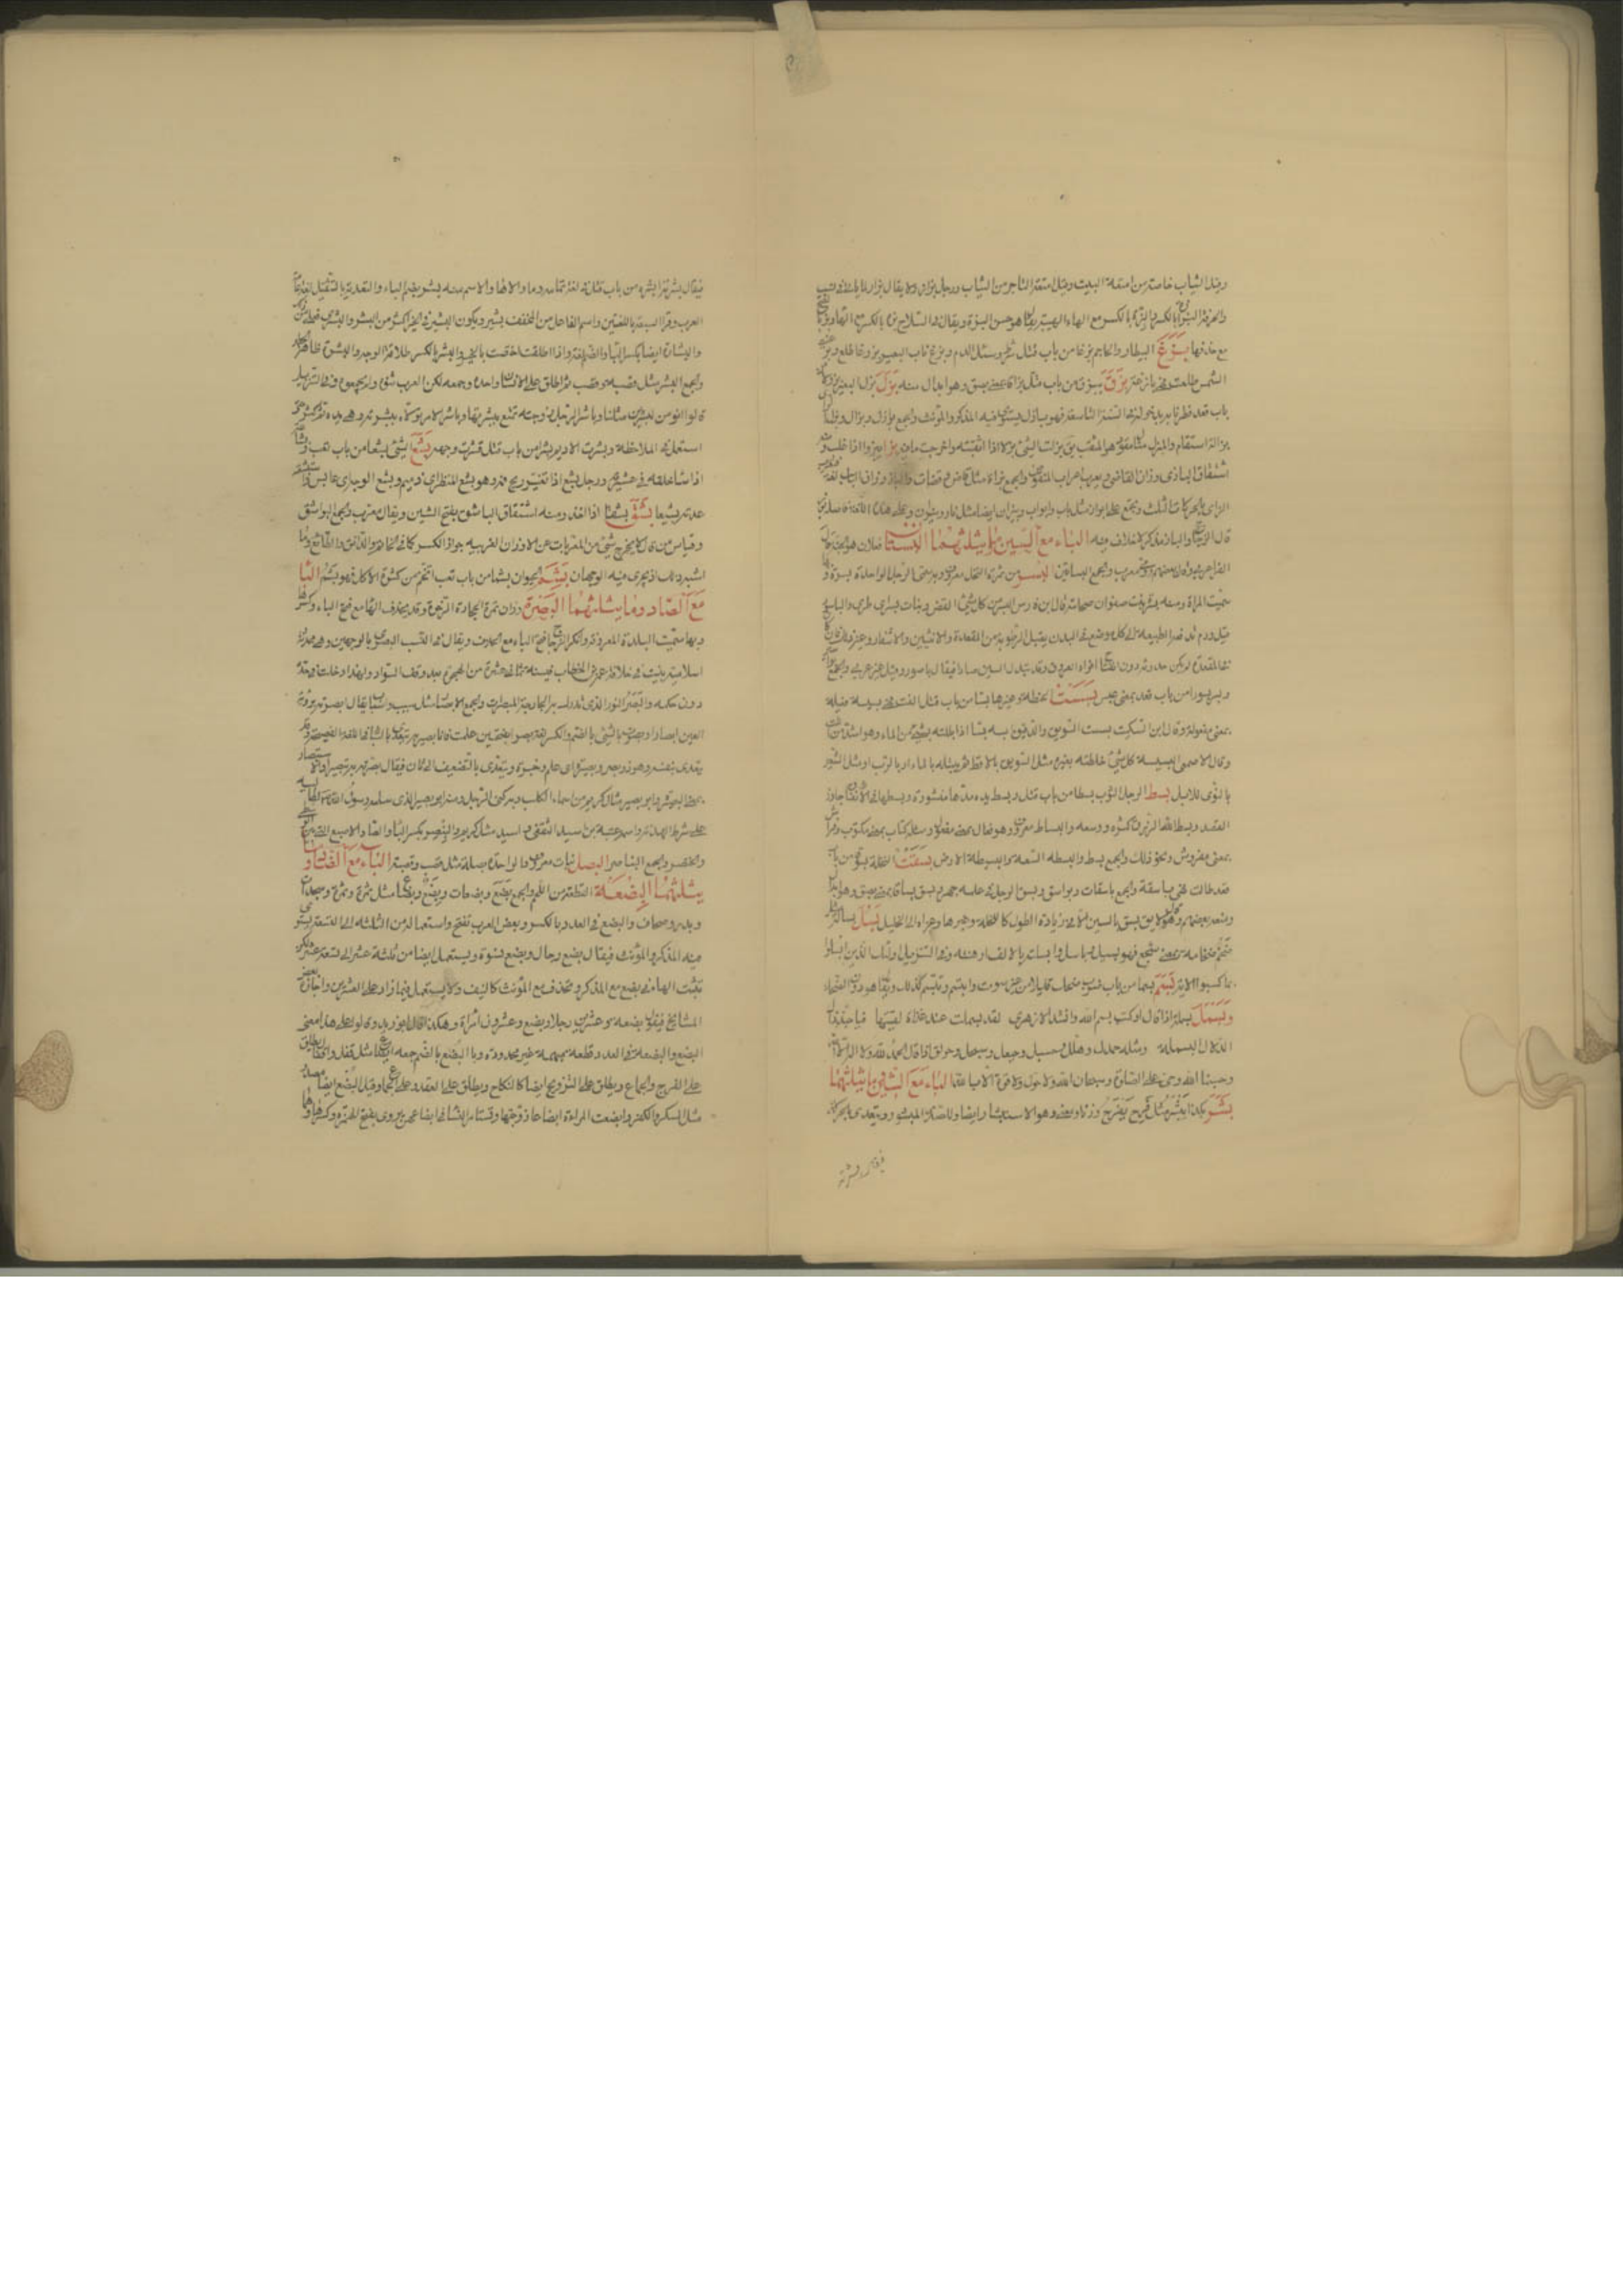 وقيل الثياب خاصة من امتعة البيت وقيل امتعة التاجر من الثياب ورجل بزاز ولا يقال
والحرفة البزازة بالكسر والبزة بالكسر مع الهاء الهيئة يقال هو حسن البزة ويقال في السلاح بزة بالكسر مع الهاء وبز
مع حذفها بَزَغَ البيطار والحاجم بزغا من باب قتل شرط واسال الدم وبزغ ناب البعير بزوغا طلع وبزغت
الشمس طلعت فهي بازغة بَزَقَ يبزق من باب قتل بزاقا بمعنى بصق وهو ابدال منه بَزَلَ البعير بزولا
باب قعد فطر نابه بدخوله في السنة التاسعة فهو بازل يستوي فيه المذكر والمؤنث والجمع بوازل وبزل
بزالة استقام والمبزل مثال مقود هو المثقب يقال بزلت الشيء بزلا اذا ثقبته واستخرجت ما فيه بزا يبزو اذا غلب ومنه
اشتقاق البازي وزان القاضي فيعرب اعراب المنقوص والجمع بزاة مثل قاض وقضاة والباز وزان الباب لغة
الزاي بالحركات الثلاث ويجمع على ابواز مثل باب وابواب وبيزان ايضا مثل نار ونيران وعلى هذه اللغة فاصله
قال الزجاج والباز مذكر لا خلاف فيه الباء مع السين وما يثلثهما البستان فعلان هو الجنة قال
الفراء عربي وقال بعضهم رومي معرب والجمع البساتين البسر من ثمر النخل معروف وبه سمي الرجل الواحدة بسرة وبها
سميت المراة ومنه بسرة بنت صفوان صحابية قال ابن فارس البسر من كل شيء الغض ونبات بسر اي طري والباسور
قيل ورم تدفعه الطبيعة الى كل موضع في البدن يقبل الرطوبة من المقعدة والانثيين والاشفار وغير ذلك فان كان
في المقعدة لم يكن حدوثه دون انفتاح افواه العروق وقد تبدل السين صادا فيقال باصور وقيل غير عربي والجمع
وبسر بسورا من باب قعد بمعنى عبس بَسَسْتُ الحنطة وغيرها بسا من باب قتل الفت فهي بسيسة فعيلة
بمعنى مفعولة وقال ابن السكيت بسست السويق والدقيق ابسه بسا اذا بللته بشيء من الماء وهو اشد من اللت
وقال الاصمعي البسيسة كل شيء خلطته بغيره مثل السويق بالاقط ثم تبله بالماء او بالرب او مثل الشعير
بالنوى للابل بسط الرجل الثوب بسطا من باب قتل وبسط يده مدها منشورة وبسطها في الانفاق جاوز
القصد وبسط الله الرزق كثره ووسعه والبساط معروف وهو فعال بمعنى مفعول ومثله كتاب بمعنى مكتوب وفراش
بمعنى مفروش ونحو ذلك والجمع بسط والبسطة السعة والبسيطة الارض بَسَقَتْ النخلة بسوقا من باب
قعد طالت فهي باسقة والجمع باسقات وبواسق وبسق الرجل في علمه مهر وبسق بساقا بمعنى بصق وهو ابدال
ومنعه بعضهم وقال لا يقال بسق بالسين الا في زيادة الطول كالنخلة وغيرها وعزاه الى الخليل بَسُلَ بسالة مثل
ضخم ضخامة بمعنى شجع فهو بسيل وباسل وابسلته بالالف رهنته وفي التنزيل اولئك الذين ابسلوا
بما كسبوا الاية بَسَمَ بسما من باب ضرب ضحك قليلا من غير صوت وابتسم وتبسم كذلك ويقال هو دون الضحك
وبَسْمَلَ بسملة اذا قال او كتب بسم الله وانشد الازهري لقد بسملت هند غداة لقيتها فيا حبذا
الدلال المبسمل ومثله حمدل وهلل وحسبل وحيعل وسبحل وحولق اذا قال الحمد لله ولا اله الا الله
وحسبنا الله وحي على الصلوة وسبحان الله ولا حول ولا قوة الا بالله الباء مع الشين وما يثلثهما
بَشِرَ بكذا يبشر مثل فرح يفرح وزنا ومعنى وهو الاستبشار ايضا والمصدر البشور ويتعدى بالحركة
فيقال بشرته
فيقال بشرته ابشره من باب قتل في لغة تهامة وما والاها والاسم منه بشر بضم الباء والتعدية بالتثقيل لغة عامة
العرب وقرا السبعة باللغتين واسم الفاعل من المخفف بشير ويكون البشير في الخير اكثر من الشر والبشرى فعلى من ذلك
والبشارة ايضا بكسر الباء والضم لغة واذا اطلقت اختصت بالخير والبشر بالكسر طلاقة الوجه والبشرة ظاهر الجلد
والجمع البشر مثل قصبة وقصب ثم اطلق على الانسان واحده وجمعه لكن العرب ثنوه ولم يجمعوه وفي التنزيل
قالوا انؤمن لبشرين مثلنا وباشر الرجل زوجته تمتع ببشرتها وباشر الامر تولاه ببشرته وهي يده ثم كثر حتى
استعمل في الملاحظة وبشرت الاديم بشرا من باب قتل قشرت وجهه بَشِعَ الشيء بشعا من باب تعب وبشاعة
اذا ساء خلقه وعشرته ورجل بشع اذا تغير ريح فمه وهو بشع المنظر اي دميم وبشع الوجه اي عابس واستبشعته
عددته بشيعا بَشَقَ بشقا اذا احد ومنه اشتقاق الباشق بفتح الشين ويقال معرب والجمع البواشق
وقياس من قال لا يخرج شيء من المعربات عن الاوزان العربية جواز الكسر كما في الخاتم والدانق والطابع وما
اشبه ذلك اذ يجري فيه الوجهان بَشِمَ الحيوان بشما من باب تعب اتخم من كثرة الاكل فهو بشم الباء
مع الصاد وما يثلثهما البصرة وزان تمرة الحجارة الرخوة وقد يحذف الهاء مع فتح الباء وكسرها
وبها سميت البلدة المعروفة وانكر الزجاج فتح الباء مع الحذف ويقال في النسب البصري بالوجهين وهي محدثة
اسلامية بنيت في خلافة عمر بن الخطاب في سنة ثماني عشرة من الهجرة بعد وقف السواد ولهذا دخلت في حده
دون حكمه والبصر النور الذي تدرك به الجارحة المبصرات والجمع الابصار مثل سبب واسباب يقال ابصرته برؤية
العين ابصارا وبصرت بالشيء بالضم والكسر لغة بصرا بفتحتين علمت فانا بصير به يتعدى بالباء في اللغة الفصيحة وقد
يتعدى بنفسه وهو ذو بصر وبصيرة اي علم وخبرة ويتعدى بالتضعيف الى ثان فيقال بصرته به تبصيرا والاستبصار
بمعنى البصيرة وابو بصير مثال كريم من اسماء الكلب وبه كني الرجل ومنه ابو بصير الذي سلمه رسول الله لطالبه
على شرط الهدنة واسمه عتبة بن اسيد الثقفي واسيد مثال كريم والبنصر بكسر الباء والصاد الاصبع التي بين الوسطى
والخنصر والجمع البناصر البصل نبات معروف الواحدة بصلة مثل قصب وقصبة الباء مع الضاد وما
يثلثهما البضعة القطعة من اللحم والجمع بضع وبضعات وبضع وبضاع مثل تمرة وتمر وسجدات
وبدر وصحاف والبضع في العدد بالكسر وبعض العرب تفتح واستعماله من الثلثة الى التسعة يستوي
فيه المذكر والمؤنث فيقال بضع رجال وبضع نسوة ويستعمل ايضا من ثلثة عشر الى تسعة عشر لكن
تثبت الهاء في بضع مع المذكر وتحذف مع المؤنث كالنيف ولا يستعمل فيما زاد على العشرين واجازه بعض
المشايخ فيقول بضعة وعشرون رجلا وبضع وعشرون امراة وهكذا قال ابو زيد وقالوا على هذا معنى
البضع والبضعة في العدد قطعة مبهمة غير محدودة والبضع بالضم جمعه ابضاع مثل قفل واقفال يطلق
على الفرج والجماع ويطلق على التزويج ايضا كالنكاح ويطلق على العقد والجماع وقيل البضع مصدر ايضا
مثل السكر والكفر وابضعت المراة ابضاعا زوجتها وتستامر النساء في ابضاعهن يروى بفتح الهمزة وكسرها